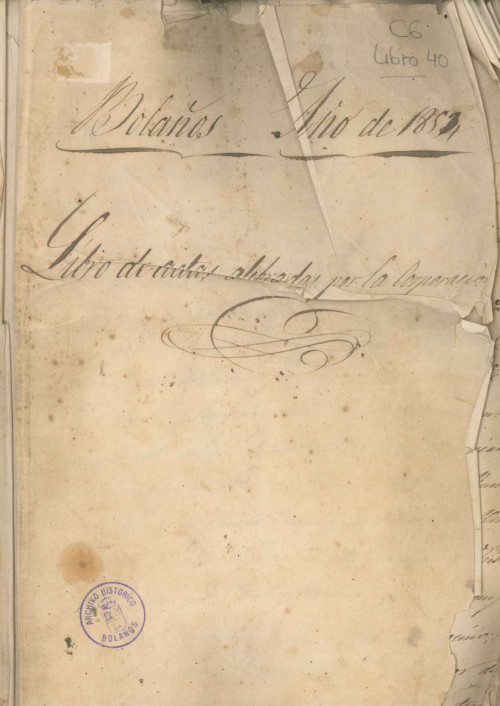 C6
Libro 40
Bolaños Año de 1853,
Libro de actas celebradas por la Corporacio
ARCHIVO HISTORICO
BOLAÑOS